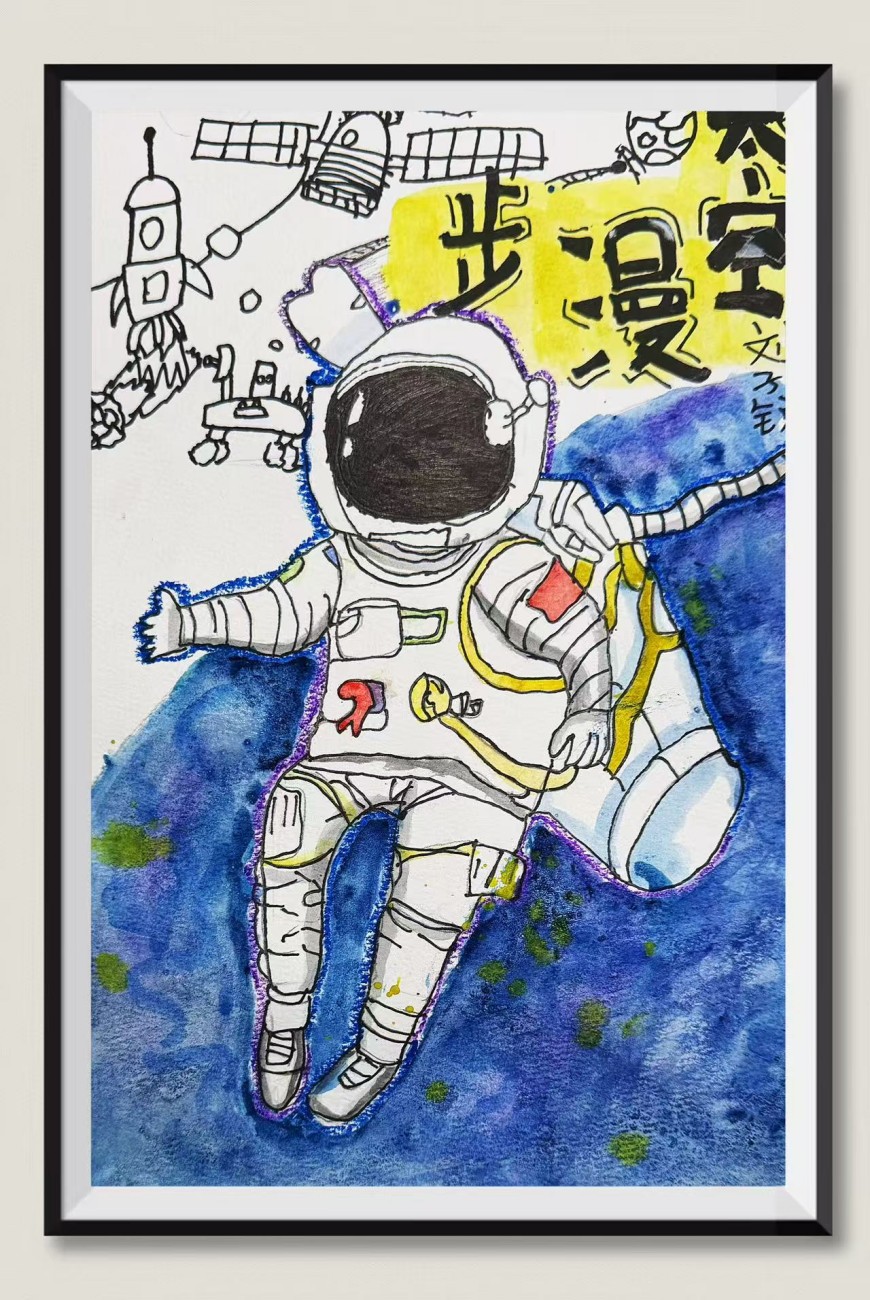 太空
漫
步
刘子